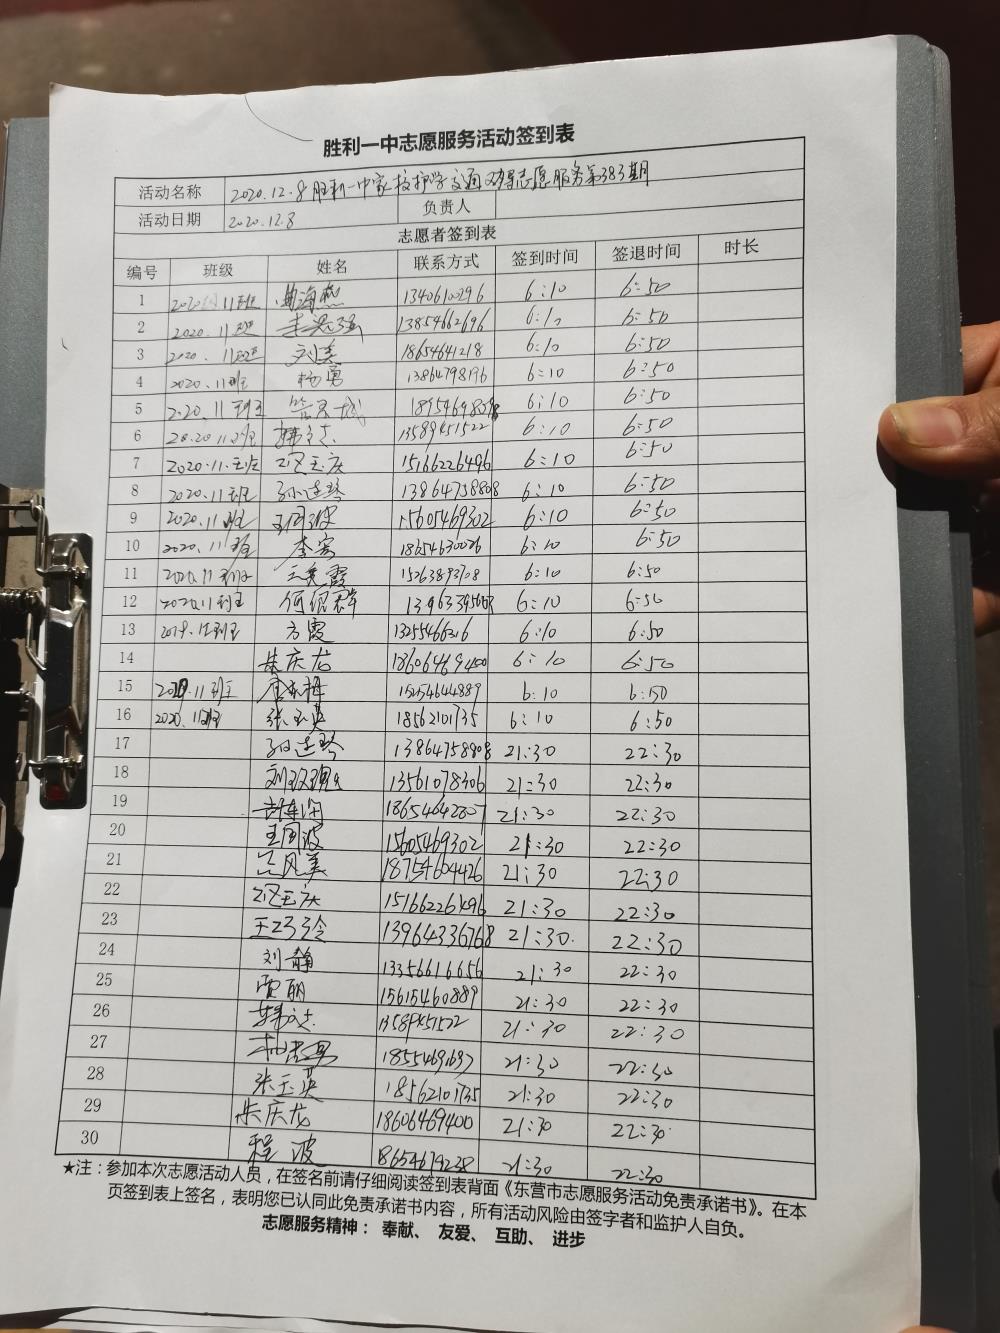 胜利一中志愿服务活动签到表
活动名称 2020.12.8胜利一中家校护学交通疏导志愿服务第383期
活动日期 2020.12.8 负责人
志愿者签到表
编号 班级 姓名 联系方式 签到时间 签退时间 时长
1 2020级11班 海燕 1340610296 6:10 6:50
2 2020.11班 13854662696 6:10 6:50
3 2020.11班 刘美 18654641218 6:10 6:50
4 2020.11班 杨勇 13864798196 6:10 6:50
5 2020.11班 6:10 6:50
6 2020.11班 韩立志 13589451522 6:10 6:50
7 2020.11班 玉庆 15166226496 6:10 6:50
8 2020.11班 孙连琴 13864758808 6:10 6:50
9 2020.11班 王国波 15605469302 6:10 6:50
10 2020.11班 李宾 18654630026 6:10 6:50
11 2020.11班 霞 15263893728 6:10 6:50
12 2020.11班 何绍群 6:10 6:50
13 2019.12班 方霞 13255466216 6:10 6:50
14 朱庆龙 18606469400 6:10 6:50
15 2019.11班 15254644889 6:10 6:50
16 2020.11班 张玉英 18562101735 6:10 6:50
17 孙连琴 13864758808 21:30 22:30
18 刘玫瑰 13561078306 21:30 22:30
19 18654642807 21:30 22:30
20 王国波 15605469302 21:30 22:30
21 风美 18754604426 21:30 22:30
22 玉庆 15166226496 21:30 22:30
23 王巧玲 13964336768 21:30 22:30
24 刘静 13356616656 21:30 22:30
25 贾丽 15615460889 21:30 22:30
26 韩立志 13589451522 21:30 22:30
27 18554691697 21:30 22:30
28 张玉英 18562101735 21:30 22:30
29 朱庆龙 18606469400 21:30 22:30
30 程波 8654679238 21:30 22:30
★注：参加本次志愿活动人员，在签名前请仔细阅读签到表背面《东营市志愿服务活动免责承诺书》。在本
页签到表上签名，表明您已认同此免责承诺书内容，所有活动风险由签字者和监护人自负。
志愿服务精神： 奉献、 友爱、 互助、 进步